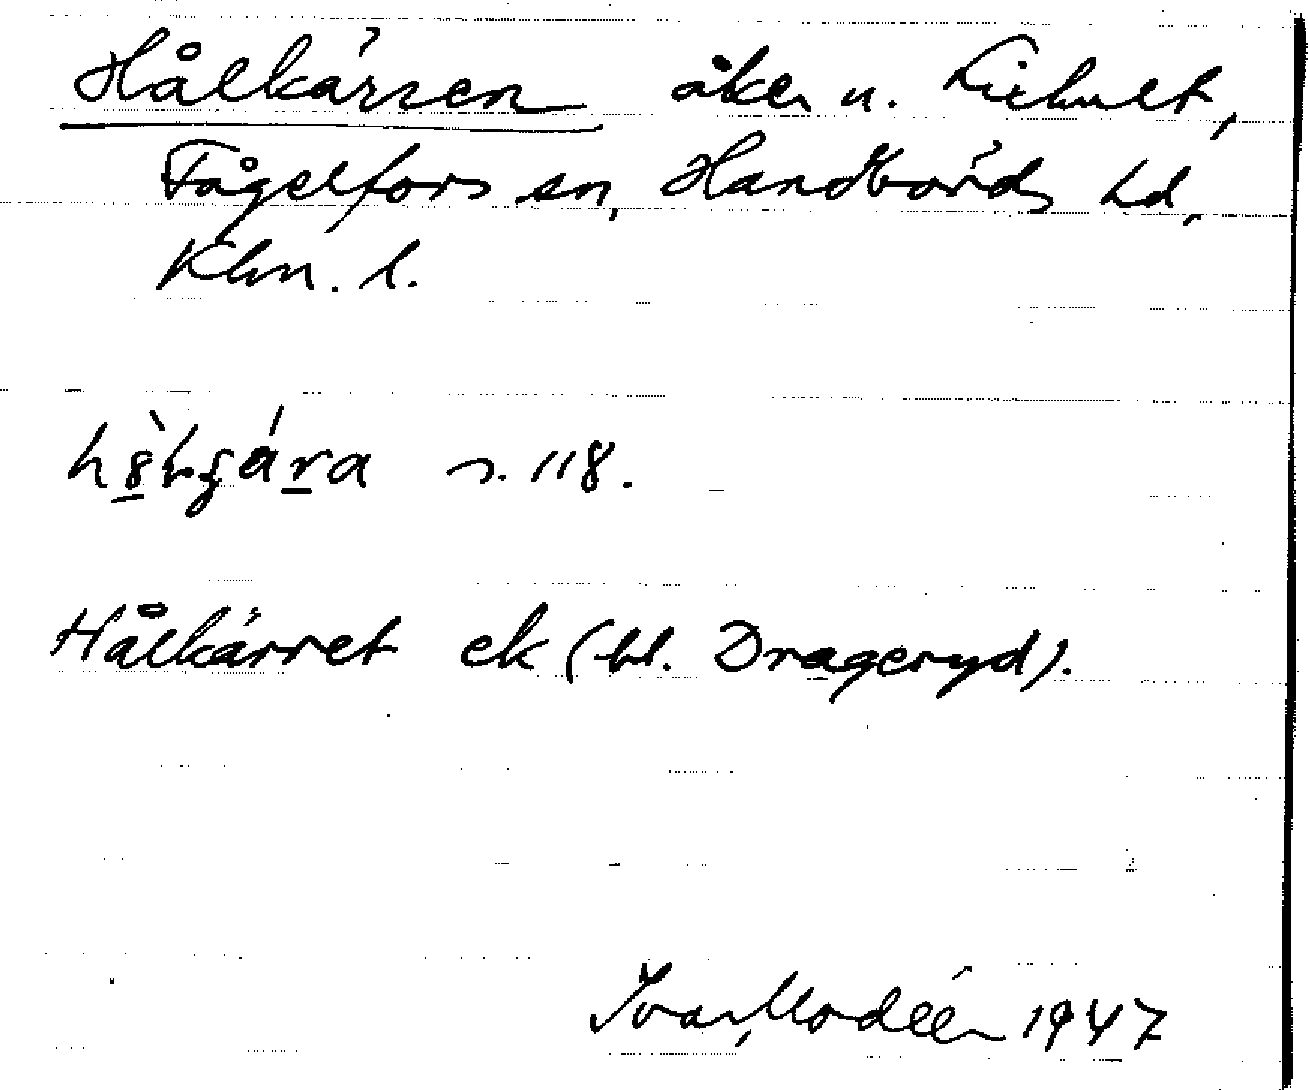 Hålkärren åker u. Lixhult,
Fågelfors sn, Handbörds hd,
Klm. l.
s. 118.
Hålkärret ek (bl. Drageryd).
Ivar Modéer 1947